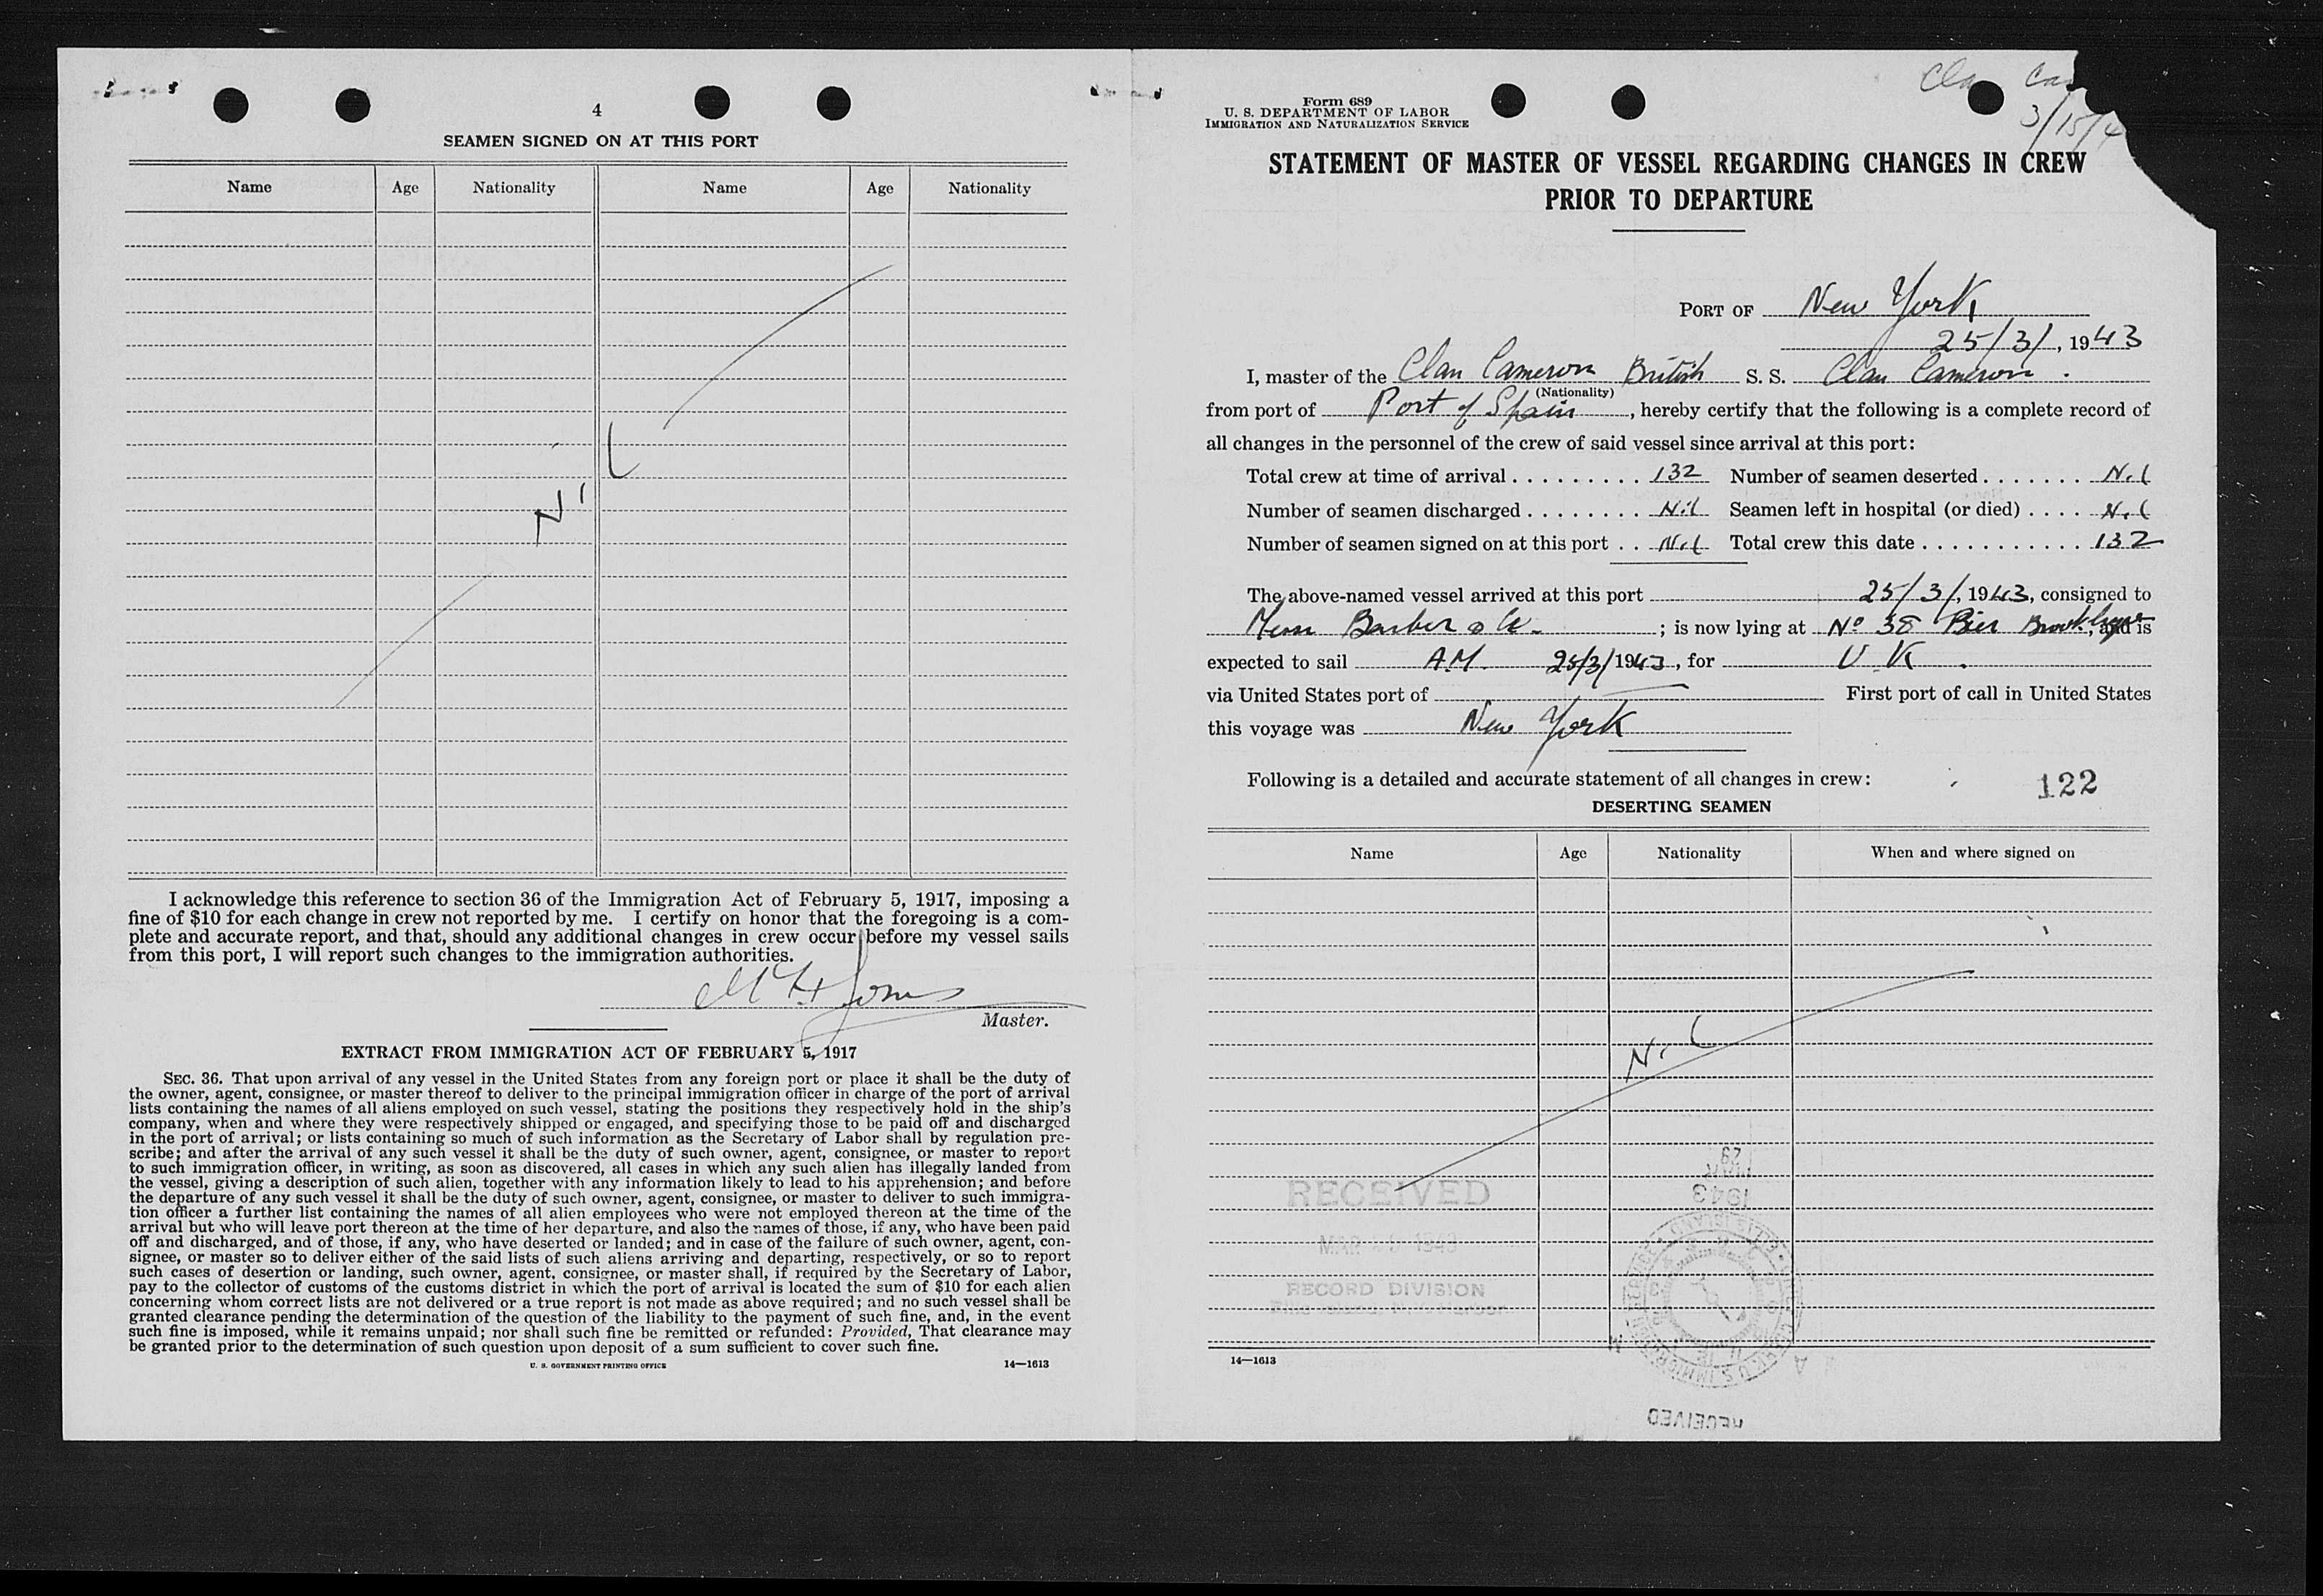 4
SEAMEN SIGNED ON AT THIS PORT
Name Age Nationality Name Age Nationality
Nil
I acknowledge this reference to section 36 of the Immigration Act of February 5, 1917, imposing a
fine of $10 for each change in crew not reported by me. I certify on honor that the foregoing is a com-
plete and accurate report, and that, should any additional changes in crew occur before my vessel sails
from this port, I will report such changes to the immigration authorities.
Master.
EXTRACT FROM IMMIGRATION ACT OF FEBRUARY 5, 1917
SEC. 36. That upon arrival of any vessel in the United States from any foreign port or place it shall be the duty of
the owner, agent, consignee, or master thereof to deliver to the principal immigration officer in charge of the port of arrival
lists containing the names of all aliens employed on such vessel, stating the positions they respectively hold in the ship's
company, when and where they were respectively shipped or engaged, and specifying those to be paid off and discharged
in the port of arrival; or lists containing so much of such information as the Secretary of Labor shall by regulation pre-
scribe; and after the arrival of any such vessel it shall be the duty of such owner, agent, consignee, or master to report
to such immigration officer, in writing, as soon as discovered, all cases in which any such alien has illegally landed from
the vessel, giving a description of such alien, together with any information likely to lead to his apprehension; and before
the departure of any such vessel it shall be the duty of such owner, agent, consignee, or master to deliver to such immigra-
tion officer a further list containing the names of all alien employees who were not employed thereon at the time of the
arrival but who will leave port thereon at the time of her departure, and also the names of those, if any, who have been paid
off and discharged, and of those, if any, who have deserted or landed; and in case of the failure of such owner, agent, con-
signee, or master so to deliver either of the said lists of such aliens arriving and departing, respectively, or so to report
such cases of desertion or landing, such owner, agent, consignee, or master shall, if required by the Secretary of Labor,
pay to the collector of customs of the customs district in which the port of arrival is located the sum of $10 for each alien
concerning whom correct lists are not delivered or a true report is not made as above required; and no such vessel shall be
granted clearance pending the determination of the question of the liability to the payment of such fine, and, in the event
such fine is imposed, while it remains unpaid; nor shall such fine be remitted or refunded: Provided, That clearance may
be granted prior to the determination of such question upon deposit of a sum sufficient to cover such fine.
U. S. GOVERNMENT PRINTING OFFICE 14—1613
3/15/4
Form 689
U. S. DEPARTMENT OF LABOR
IMMIGRATION AND NATURALIZATION SERVICE
STATEMENT OF MASTER OF VESSEL REGARDING CHANGES IN CREW
PRIOR TO DEPARTURE
PORT OF New York
25/3/, 1943
I, master of the Clan Cameron British S. S. Clan Cameron.
(Nationality)
from port of Port of Spain, hereby certify that the following is a complete record of
all changes in the personnel of the crew of said vessel since arrival at this port:
Total crew at time of arrival . . . . . . . . . 132 Number of seamen deserted . . . . . . . Nil
Number of seamen discharged . . . . . . . . Nil Seamen left in hospital (or died) . . . . Nil
Number of seamen signed on at this port . . Nil Total crew this date . . . . . . . . . . . . 132
The above-named vessel arrived at this port 25/3/, 1943, consigned to
Messrs Barber & Co. ; is now lying at No 38 Pier Brooklyn, and is
expected to sail A.M. 25/3/1943, for U K .
via United States port of — First port of call in United States
this voyage was New York
Following is a detailed and accurate statement of all changes in crew:
122
DESERTING SEAMEN
Name Age Nationality When and where signed on
Nil
29
MAR
1943
RECEIVED
MAR 1943
RECORD DIVISION
14—1613
RECEIVED